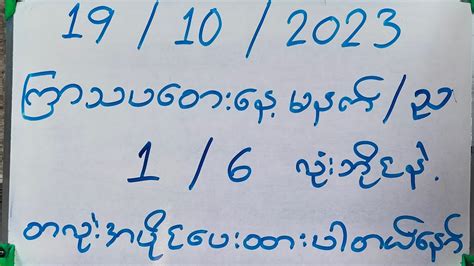 19 / 10 / 2023
ကြာသပတေးနေ့ မနက် / ည
1 / 6 လုံးဘိုင်နဲ.
တလုံး အပိုင်ပေးထားပါတယ်နော်